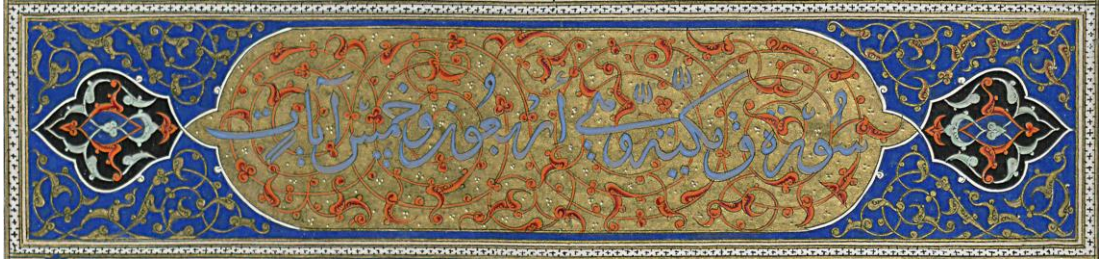 سُوْرَة ق مكيّة وّهي أرْبعُون وخمسْ آيات